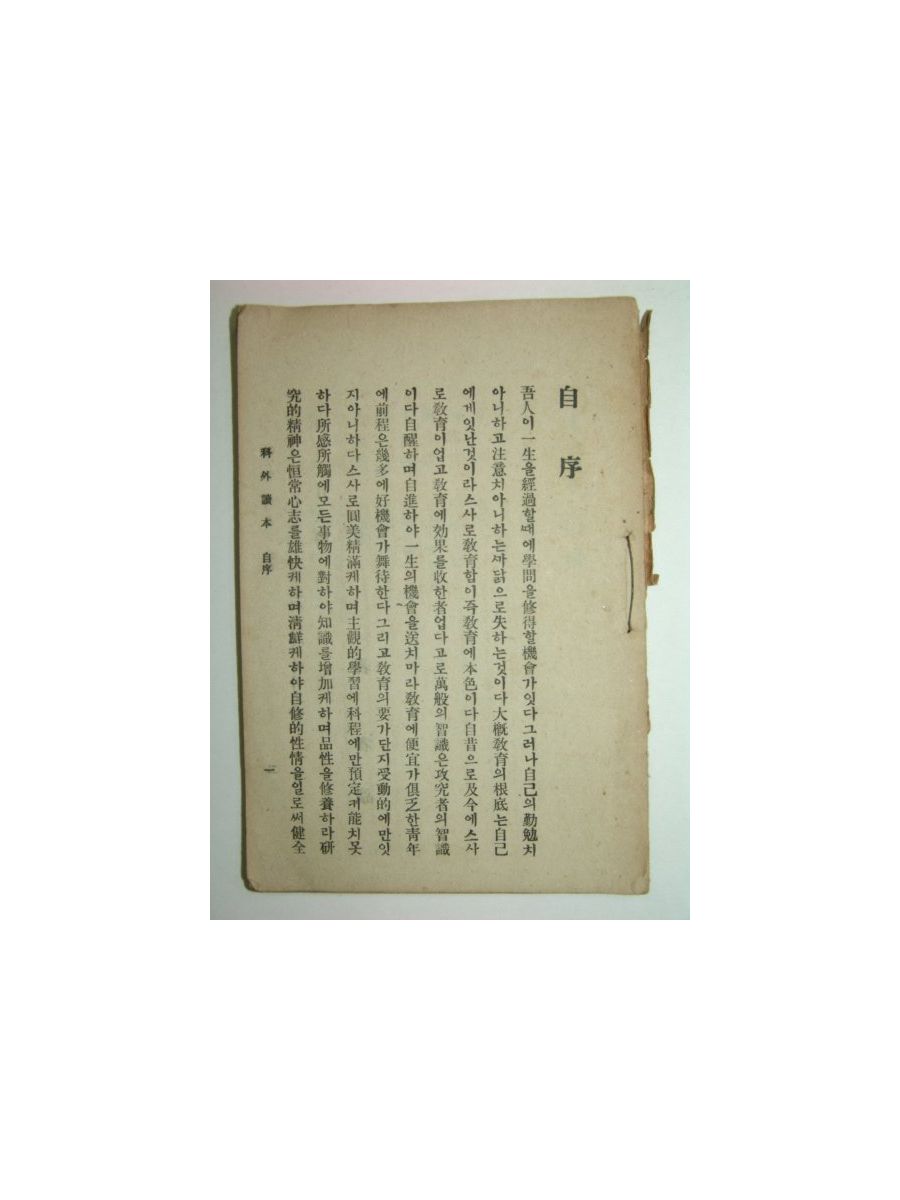 自序
吾人이一生을經過할때에學問을修得할機會가잇다그러나自己의勤勉치
아니하고注意치아니하는까닭으로失하는것이다大槪敎育의根底는自己
에게잇난것이라스사로敎育함이즉敎育에本色이다自昔으로及今에스사
로敎育이업고敎育에効果를收한者업다고로萬般의智識은攻究者의智識
이다自醒하며自進하야一生의機會을送치마라敎育에便宜가俱乏한靑年
에前程은幾多에好機會가舞待한다그리고敎育의要가단지受動的에만잇
지아니하다스사로圓美精滿케하며主觀的學習에科程에만預定커能치못
하다所感所觸에모든事物에對하야知識를增加케하며品性을修養하라硏
究的精神은恒常心志를雄快케하며淸鮮케하야自修的性情을일로써健全
科外讀本 自序 一